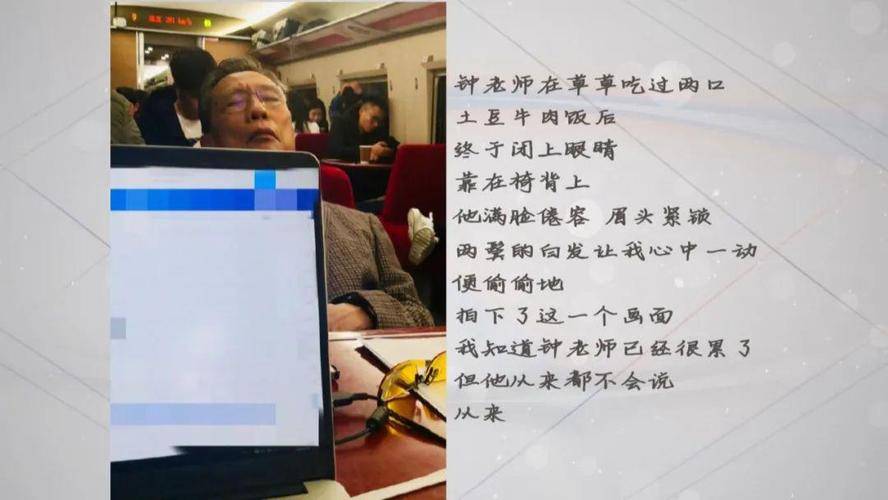 钟老师在草草吃过两口
土豆牛肉饭后
终于闭上眼睛
靠在椅背上
他满脸倦容 眉头紧锁
两鬓的白发让我心中一动
便偷偷地
拍下了这一个画面
我知道钟老师已经很累了
但他从来都不会说
从来